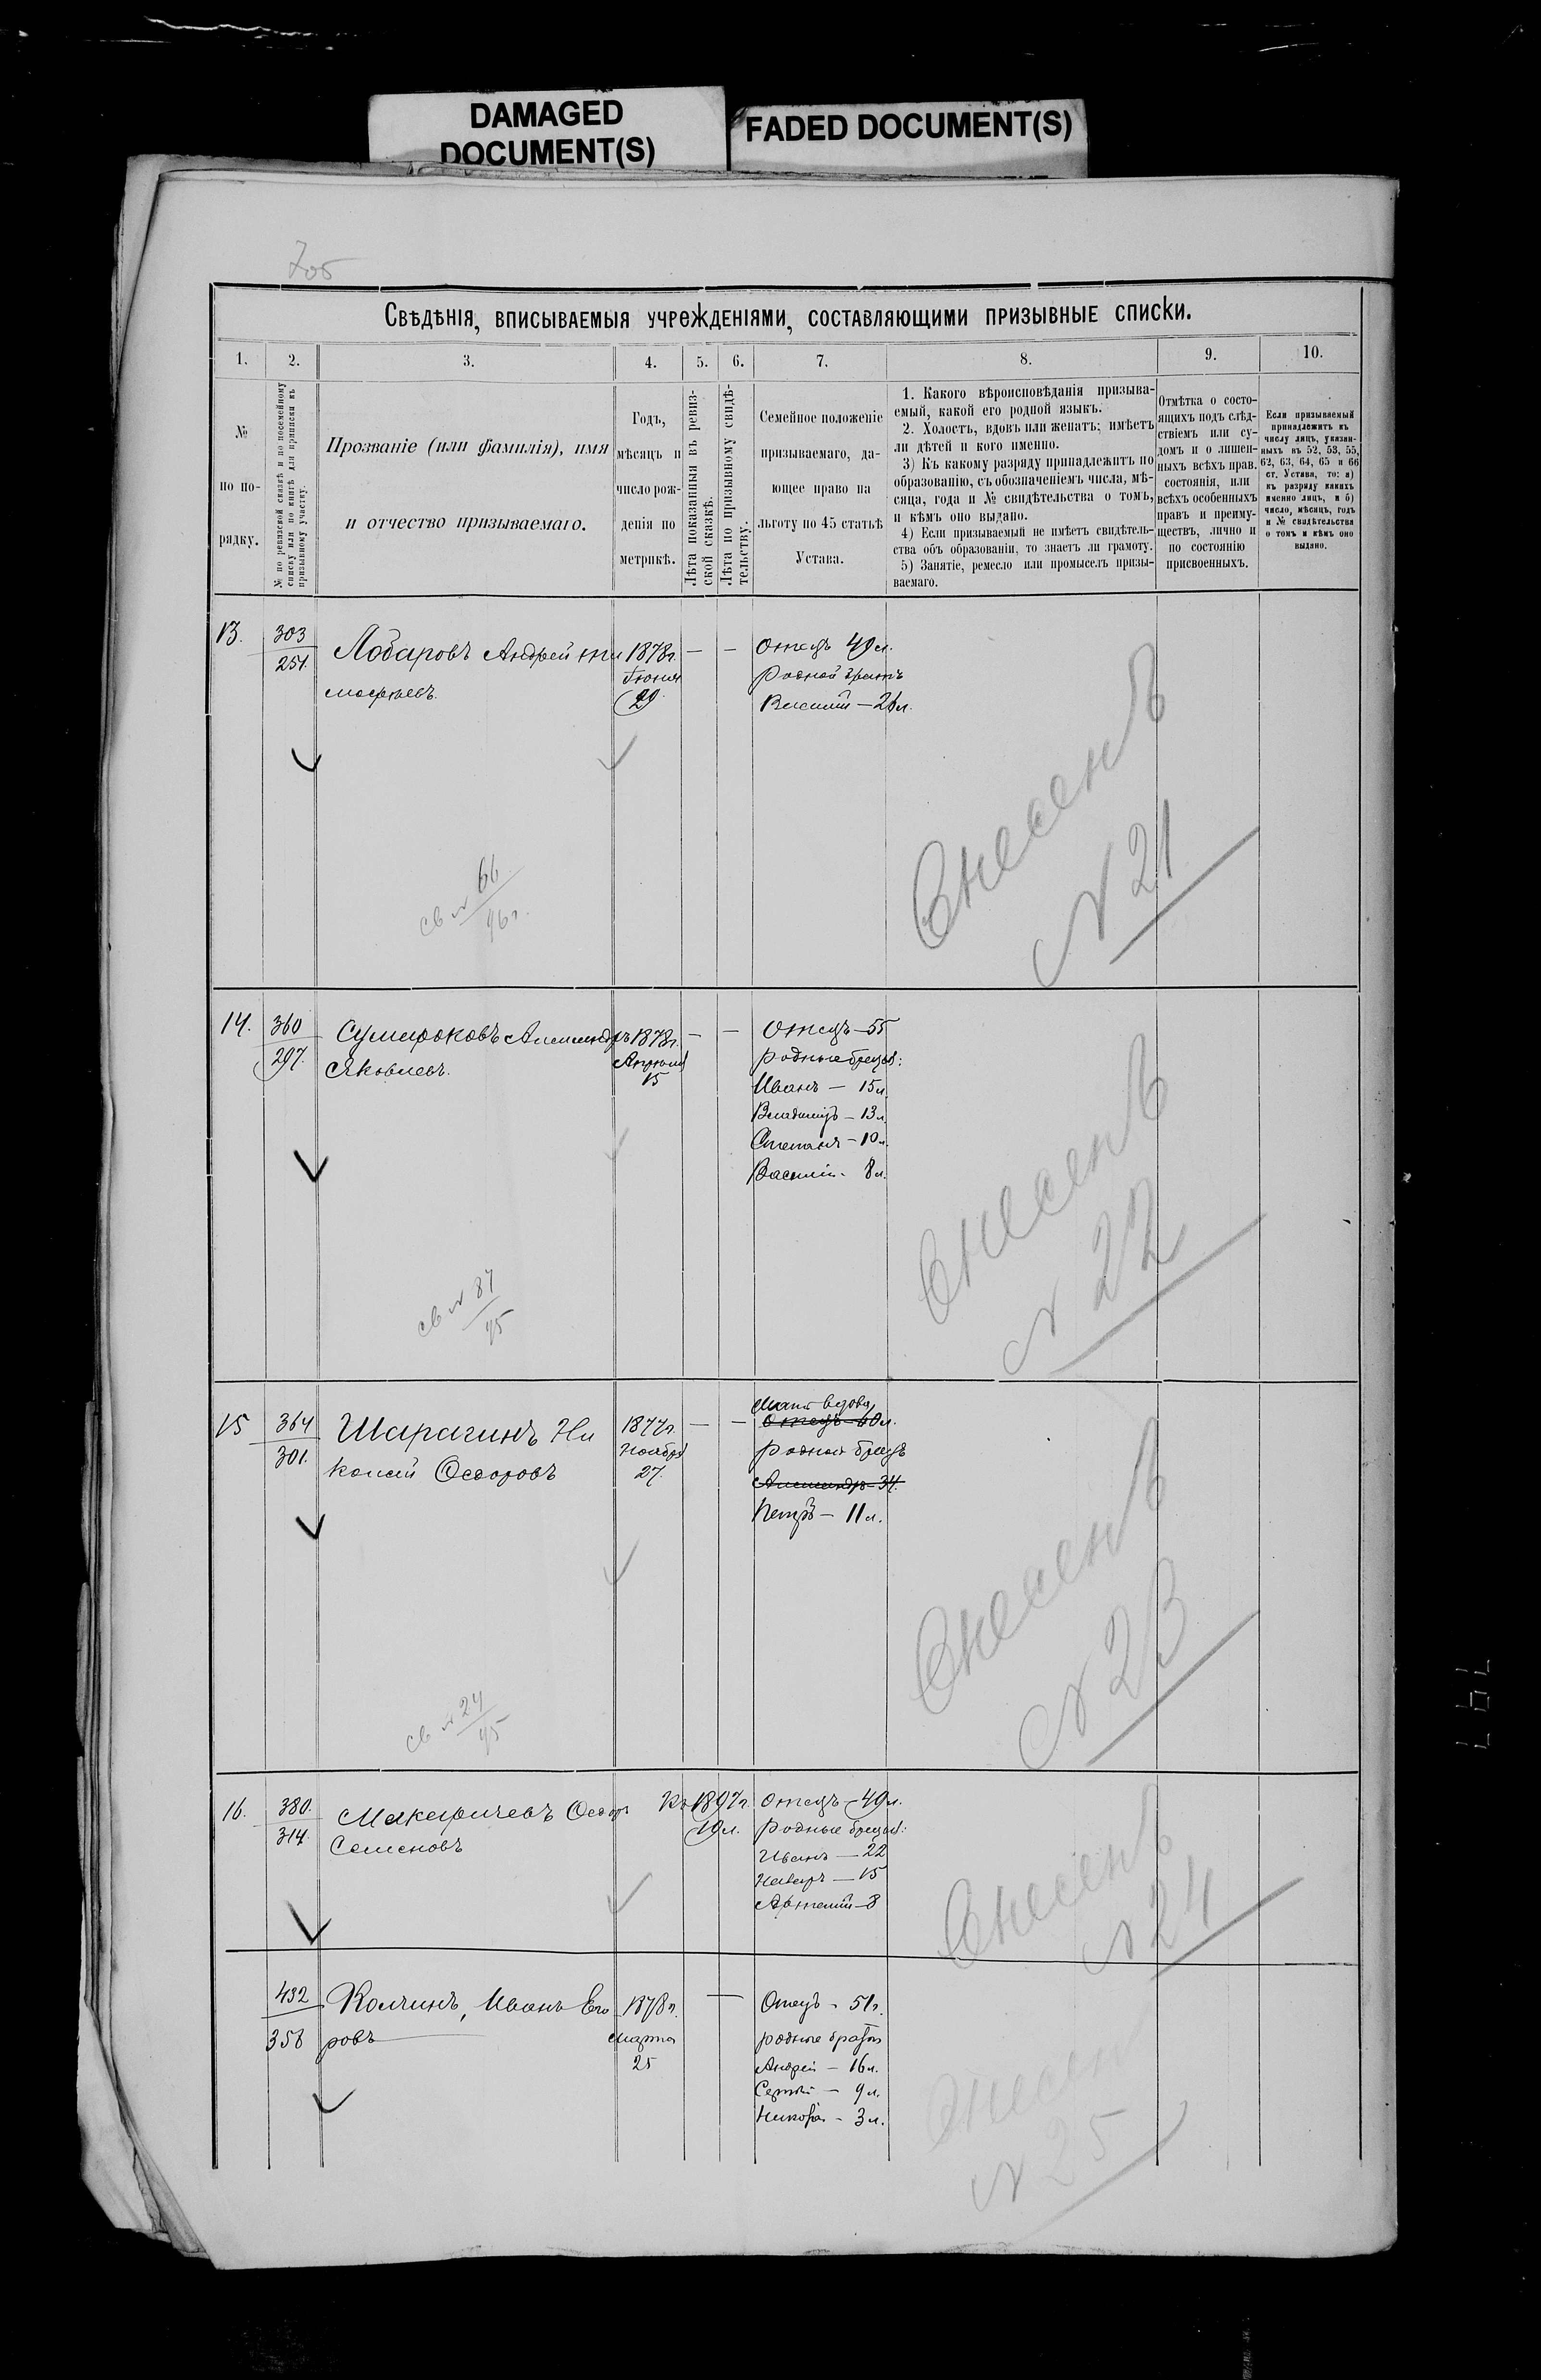 DAMAGED
DOCUMENT(S)
FADED DOCUMENT(S)
705
Свѣдѣнія, вписываемыя учрежденіями, составляющими призывные списки.
1. 2. 3. 4. 5. 6. 7. 8. 9. 10.
№
по по-
рядку.
№ по ревизской сказкѣ и по посемейному
списку или по книгѣ для приписки къ
призывному участку.
Прозваніе (или фамилія), имя
и отчество призываемаго.
Годъ,
мѣсяцъ и
число рож-
денія по
метрикѣ.
Лѣта показанныя въ ревиз-
ской сказкѣ.
Лѣта по призывному свидѣ-
тельству.
Семейное положеніе
призываемаго, да-
ющее право на
льготу по 45 статьѣ
Устава.
1. Какого вѣроисповѣданія призыва-
емый, какой его родной языкъ.
2. Холостъ, вдовъ или женатъ; имѣетъ
ли дѣтей и кого именно.
3) Къ какому разряду принадлежитъ по
образованію, съ обозначеніемъ числа, мѣ-
сяца, года и № свидѣтельства о томъ,
и кѣмъ оно выдано.
4) Если призываемый не имѣетъ свидѣтель-
ства объ образованіи, то знаетъ ли грамоту.
5) Занятіе, ремесло или промыселъ призы-
ваемаго.
Отмѣтка о состо-
ящихъ подъ слѣд-
ствіемъ или су-
домъ и о лишен-
ныхъ всѣхъ прав.
состоянія, или
всѣхъ особенныхъ
правъ и преиму-
ществъ, лично и
по состоянію
присвоенныхъ.
Если призываемый
принадлежитъ къ
числу лицъ, указан-
ныхъ въ 52, 53, 55,
62, 63, 64, 65 и 66
ст. Устава, то: а)
къ разряду какихъ
именно лицъ, и б)
число, мѣсяцъ, годъ
и № свидѣтельства
о томъ и кѣмъ оно
выдано.
13.
303
251.
Лобаровъ Андрей Ти
мофѣевъ.
1878г.
Іюня
29.
— —
Отецъ 49л.
Родной братъ
21л.
св № 66
96г.
Внесенъ
№ 21
14.
360
297.
Сумароковъ Александръ
Яковлевъ.
1878г.
Апрѣля
15
— —
Отецъ — 55
родные братья:
Иванъ — 15л.
Владиміръ — 13л.
Степанъ — 10л.
Василій — 8л.
св № 87
95
Внесенъ
№ 22
15
364
301.
Шарагинъ Ни
колай Ѳедоровъ
1877г.
Ноября
27.
— —
Мать вдова
Отецъ — 60л.
родной братъ
Александръ — 34.
Петръ — 11л.
св № 24
95
Внесенъ
№ 23
16.
380.
314.
Макарычевъ Ѳедоръ
Семеновъ
Къ 1897г.
19л.
Отецъ — 49л.
родные братья:
Иванъ — 22
— 15
Артемій — 8
Внесенъ
№ 24
432
358
Колчинъ, Иванъ Его
ровъ
1878г.
Марта
25
—
Отецъ — 51г.
родные братья
Андрей — 16л.
Сергѣй — 9л.
Николай — 3л.
Внесенъ
№ 25